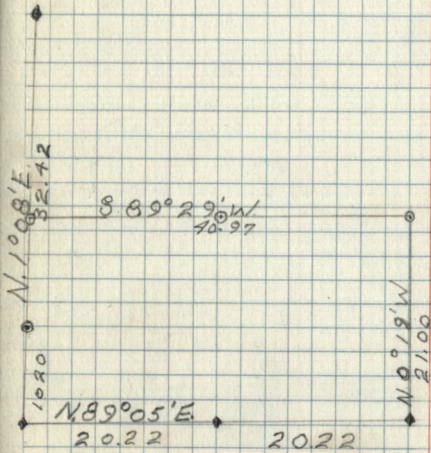 N. 1°08' E.
32.42
S. 89°29' W.
40.97
N 0°19' W
21.00
1020
N. 89°05' E.
20.22
2022